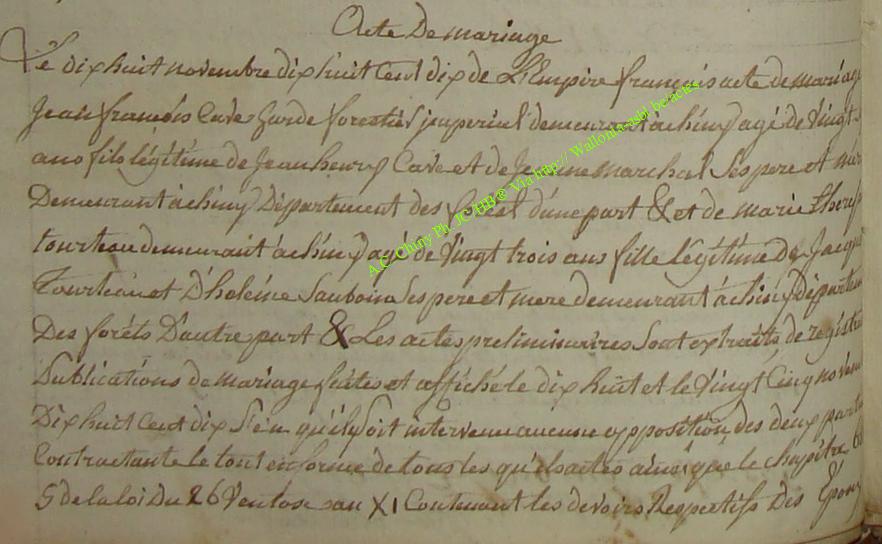 Acte De mariage
Le dix huit novembre dix huit Cent dix de L'Empire françois acte de mariage
Jean françois Cave Garde forestier jmperial demeurant à chiny agé de Vingt
ans fils légitime de Jean henry Cave et de Jeanne marchal Ses pere et mere
Demeurant à chiny Département des forêt d'une part & et de marie therese
tourteau demeurant à chiny agé de Vingt trois ans fille légitime de Jacque
Tourteau et D'heleine Ses pere et mere demeurant à chiny départem
Des forêts D'autre part & Les actes preliminaires Sont extraits de registre
Publications de mariage faites et affiché le dix huit et le Vingt Cinq novem
Dix huit Cent dix S'en qu'il Soit intervenu aucune opposition, des deux partie
Contractante le tout en forme de tous les qu'els actes ainsi que le chapitre 6
5 de la loi Du 26 Ventose an XI Contenant les devoirs Respectifs Des Epoux
A.C. Chiny Ph JC HB® Via http:// Wallonia-asbl be/actes